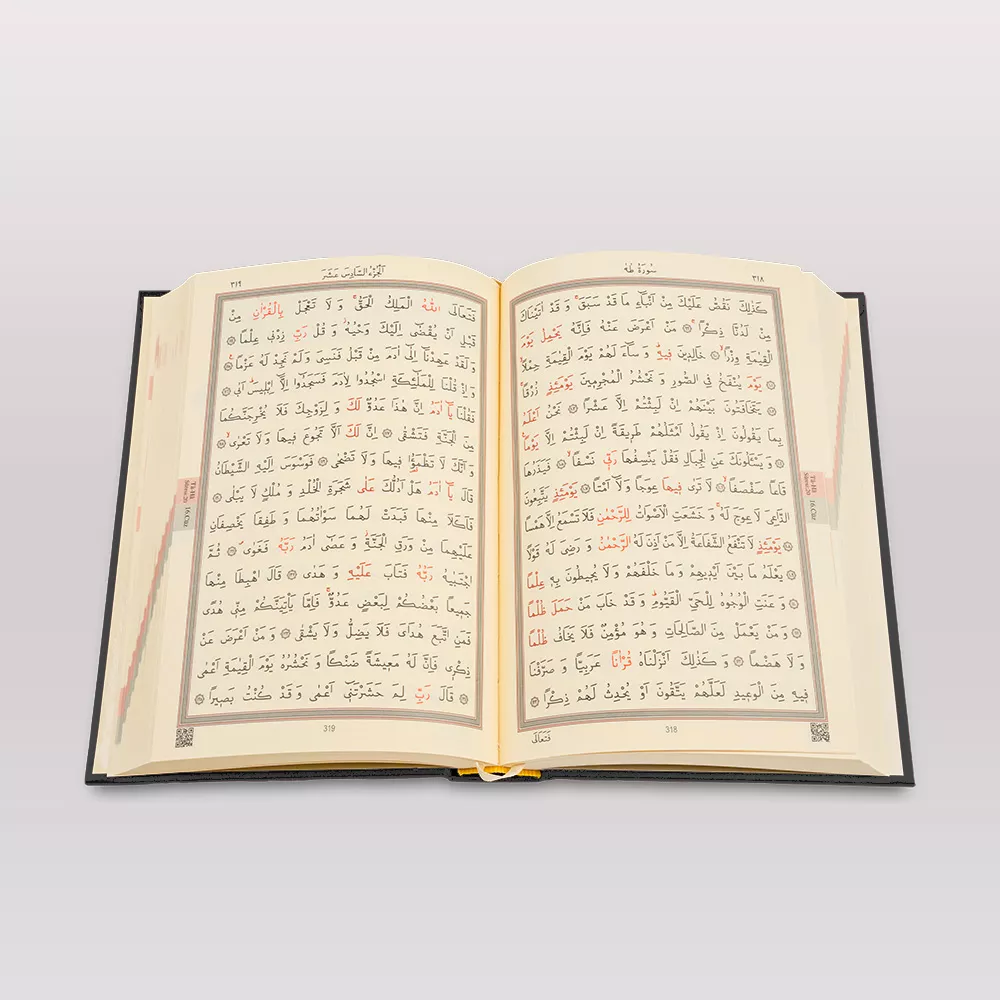 ٣١٨ سُورَةُ طٰهٰ
كَذٰلِكَ نَقُصُّ عَلَيْكَ مِنْ اَنْبَٓاءِ مَا قَدْ سَبَقَۚ وَقَدْ اٰتَيْنَاكَ
مِنْ لَدُنَّا ذِكْرًاۚ ﴿٩٩﴾ مَنْ اَعْرَضَ عَنْهُ فَاِنَّهُ يَحْمِلُ يَوْمَ
الْقِيٰمَةِ وِزْرًاۙ ﴿١٠٠﴾ خَالِدٖينَ فٖيهِۜ وَسَٓاءَ لَهُمْ يَوْمَ الْقِيٰمَةِ حِمْلًاۙ
﴿١٠١﴾ يَوْمَ يُنْفَخُ فِي الصُّورِ وَنَحْشُرُ الْمُجْرِمٖينَ يَوْمَئِذٍ زُرْقًاۚ
﴿١٠٢﴾ يَتَخَافَتُونَ بَيْنَهُمْ اِنْ لَبِثْتُمْ اِلَّا عَشْرًا ﴿١٠٣﴾ نَحْنُ اَعْلَمُ
بِمَا يَقُولُونَ اِذْ يَقُولُ اَمْثَلُهُمْ طَرٖيقَةً اِنْ لَبِثْتُمْ اِلَّا يَوْمًا۟
﴿١٠٤﴾ وَيَسْـَٔلُونَكَ عَنِ الْجِبَالِ فَقُلْ يَنْسِفُهَا رَبّٖي نَسْفًاۙ ﴿١٠٥﴾ فَيَذَرُهَا
قَاعًا صَفْصَفًاۙ ﴿١٠٦﴾ لَا تَرٰى فٖيهَا عِوَجًا وَلَٓا اَمْتًاۜ ﴿١٠٧﴾ يَوْمَئِذٍ يَتَّبِعُونَ
الدَّاعِيَ لَا عِوَجَ لَهُۚ وَخَشَعَتِ الْاَصْوَاتُ لِلرَّحْمٰنِ فَلَا تَسْمَعُ اِلَّا هَمْسًا
﴿١٠٨﴾ يَوْمَئِذٍ لَا تَنْفَعُ الشَّفَاعَةُ اِلَّا مَنْ اَذِنَ لَهُ الرَّحْمٰنُ وَرَضِيَ لَهُ قَوْلًا
﴿١٠٩﴾ يَعْلَمُ مَا بَيْنَ اَيْدٖيهِمْ وَمَا خَلْفَهُمْ وَلَا يُحٖيطُونَ بِهٖ عِلْمًا
﴿١١٠﴾ وَعَنَتِ الْوُجُوهُ لِلْحَيِّ الْقَيُّومِۜ وَقَدْ خَابَ مَنْ حَمَلَ ظُلْمًا
﴿١١١﴾ وَمَنْ يَعْمَلْ مِنَ الصَّالِحَاتِ وَهُوَ مُؤْمِنٌ فَلَا يَخَافُ ظُلْمًا
وَلَا هَضْمًا ﴿١١٢﴾ وَكَذٰلِكَ اَنْزَلْنَاهُ قُرْاٰنًا عَرَبِيًّا وَصَرَّفْنَا
فٖيهِ مِنَ الْوَعٖيدِ لَعَلَّهُمْ يَتَّقُونَ اَوْ يُحْدِثُ لَهُمْ ذِكْرًا ﴿١١٣﴾
318
فَتَعَالَى
Tâ-Hâ
Sûresi:20
16.Cüz
اَلْجُزْءُ السَّادِسَ عَشَرَ ٣١٩
فَتَعَالَى اللّٰهُ الْمَلِكُ الْحَقُّۚ وَلَا تَعْجَلْ بِالْقُرْاٰنِ مِنْ
قَبْلِ اَنْ يُقْضٰٓى اِلَيْكَ وَحْيُهُؗ وَقُلْ رَبِّ زِدْنٖي عِلْمًا ﴿١١٤﴾
وَلَقَدْ عَهِدْنَٓا اِلٰٓى اٰدَمَ مِنْ قَبْلُ فَنَسِيَ وَلَمْ نَجِدْ لَهُ عَزْمًا۟ ﴿١١٥﴾
وَاِذْ قُلْنَا لِلْمَلٰٓئِكَةِ اسْجُدُوا لِاٰدَمَ فَسَجَدُٓوا اِلَّٓا اِبْلٖيسَۜ اَبٰى ﴿١١٦﴾
فَقُلْنَا يَٓا اٰدَمُ اِنَّ هٰذَا عَدُوٌّ لَكَ وَلِزَوْجِكَ فَلَا يُخْرِجَنَّكُمَا
مِنَ الْجَنَّةِ فَتَشْقٰى ﴿١١٧﴾ اِنَّ لَكَ اَلَّا تَجُوعَ فٖيهَا وَلَا تَعْرٰىۙ ﴿١١٨﴾
وَاَنَّكَ لَا تَظْمَؤُ۬ا فٖيهَا وَلَا تَضْحٰى ﴿١١٩﴾ فَوَسْوَسَ اِلَيْهِ الشَّيْطَانُ
قَالَ يَٓا اٰدَمُ هَلْ اَدُلُّكَ عَلٰى شَجَرَةِ الْخُلْدِ وَمُلْكٍ لَا يَبْلٰى ﴿١٢٠﴾
فَاَكَلَا مِنْهَا فَبَدَتْ لَهُمَا سَوْاٰتُهُمَا وَطَفِقَا يَخْصِفَانِ
عَلَيْهِمَا مِنْ وَرَقِ الْجَنَّةِؗ وَعَصٰٓى اٰدَمُ رَبَّهُ فَغَوٰىۖ ﴿١٢١﴾ ثُمَّ
اجْتَبٰيهُ رَبُّهُ فَتَابَ عَلَيْهِ وَهَدٰى ﴿١٢٢﴾ قَالَ اهْبِطَا مِنْهَا
جَمٖيعًا بَعْضُكُمْ لِبَعْضٍ عَدُوٌّۚ فَاِمَّا يَأْتِيَنَّكُمْ مِنّٖي هُدًى
فَمَنِ اتَّبَعَ هُدَايَ فَلَا يَضِلُّ وَلَا يَشْقٰى ﴿١٢٣﴾ وَمَنْ اَعْرَضَ عَنْ
ذِكْرٖي فَاِنَّ لَهُ مَعٖيشَةً ضَنْكًا وَنَحْشُرُهُ يَوْمَ الْقِيٰمَةِ اَعْمٰى
﴿١٢٤﴾ قَالَ رَبِّ لِمَ حَشَرْتَنٖٓي اَعْمٰى وَقَدْ كُنْتُ بَصٖيرًا ﴿١٢٥﴾
319
Tâ-Hâ
Sûresi:20
16.Cüz